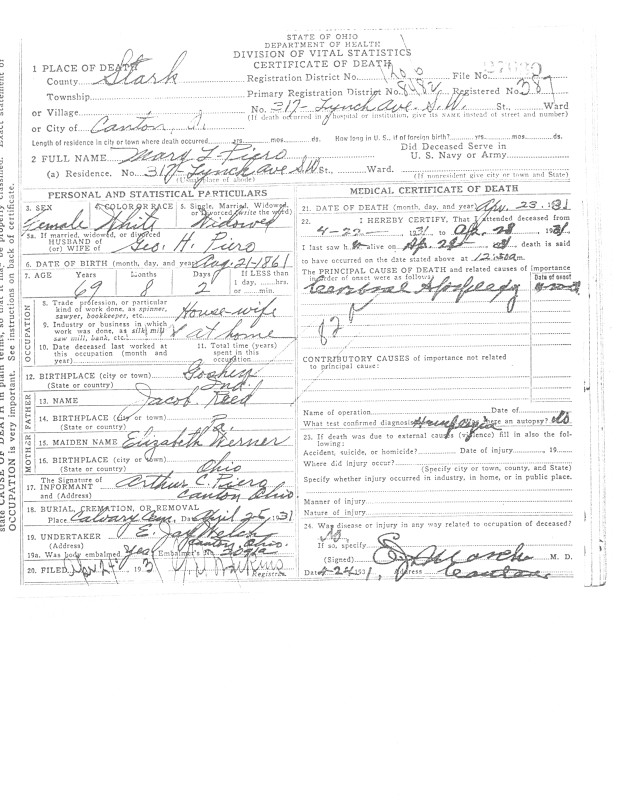 STATE OF OHIO
DEPARTMENT OF HEALTH
DIVISION OF VITAL STATISTICS
CERTIFICATE OF DEATH
1 PLACE OF DEATH
County Stark
Registration District No. File No.
Township Primary Registration District No. 8482 Registered 387
or Village No. 317-Lynch Ave. S.W. St., Ward
(If death occurred in a hospital or institution, give its NAME instead of street and number)
or City of Canton, O.
Length of residence in city or town where death occurred yrs. mos. ds. How long in U. S., if of foreign birth? yrs. mos. ds.
2 FULL NAME Mary L. Piero Did Deceased Serve in
U. S. Navy or Army
(a) Residence. No. 317-Lynch Ave S.W. St., Ward.
(Usual place of abode) (If nonresident give city or town and State)
PERSONAL AND STATISTICAL PARTICULARS
3. SEX 4. COLOR OR RACE 5. Single, Married, Widowed, or Divorced (write the word)
Female White Widowed
5a. If married, widowed, or divorced
HUSBAND of
(or) WIFE of Geo. H. Piero
6. DATE OF BIRTH (month, day, and year) Aug-21-1861
7. AGE Years Months Days If LESS than
1 day, hrs.
or min.
69 8 2
OCCUPATION
8. Trade, profession, or particular
kind of work done, as spinner,
sawyer, bookkeeper, etc. House-wife
9. Industry or business in which
work was done, as silk mill,
saw mill, bank, etc. at home
10. Date deceased last worked at
this occupation (month and
year)
11. Total time (years)
spent in this
occupation
12. BIRTHPLACE (city or town) Goshen
(State or country) Ind.
FATHER
13. NAME Jacob Reed
14. BIRTHPLACE (city or town)
(State or country) Pa.
MOTHER
15. MAIDEN NAME Elizabeth Werner
16. BIRTHPLACE (city or town)
(State or country) Ohio
17. The Signature of
INFORMANT Arthur C. Piero
and (Address) Canton Ohio
18. BURIAL, CREMATION, OR REMOVAL
Place Calvary Cem. Date April 25, 1931
19. UNDERTAKER E. Jay Welch
(Address) Canton, Ohio.
19a. Was body embalmed Yes Embalmer's No.
20. FILED Apr 24 193
Registrar.
MEDICAL CERTIFICATE OF DEATH
21. DATE OF DEATH (month, day, and year) Apr. 23. 1931
22. I HEREBY CERTIFY, That I attended deceased from
4-22- 1931, to Apr. 23, 1931
I last saw h alive on Apr. 23, 1931 death is said
to have occurred on the date stated above at 12:50 a.m.
The PRINCIPAL CAUSE OF DEATH and related causes of importance
in order of onset were as follows: Date of onset
Cerebral Apoplexy
82
CONTRIBUTORY CAUSES of importance not related
to principal cause:
Name of operation Date of
What test confirmed diagnosis? Hemiplegia Was there an autopsy? No
23. If death was due to external causes (violence) fill in also the following:
Accident, suicide, or homicide? Date of injury , 19
Where did injury occur?
(Specify city or town, county, and State)
Specify whether injury occurred in industry, in home, or in public place.
Manner of injury
Nature of injury
24. Was disease or injury in any way related to occupation of deceased?
No
If so, specify
(Signed) M. D.
Date 4-24-1931, Address Canton
state CAUSE OF DEATH in plain terms, so that it may be properly classified. Exact statement of
OCCUPATION is very important. See instructions on back of certificate.